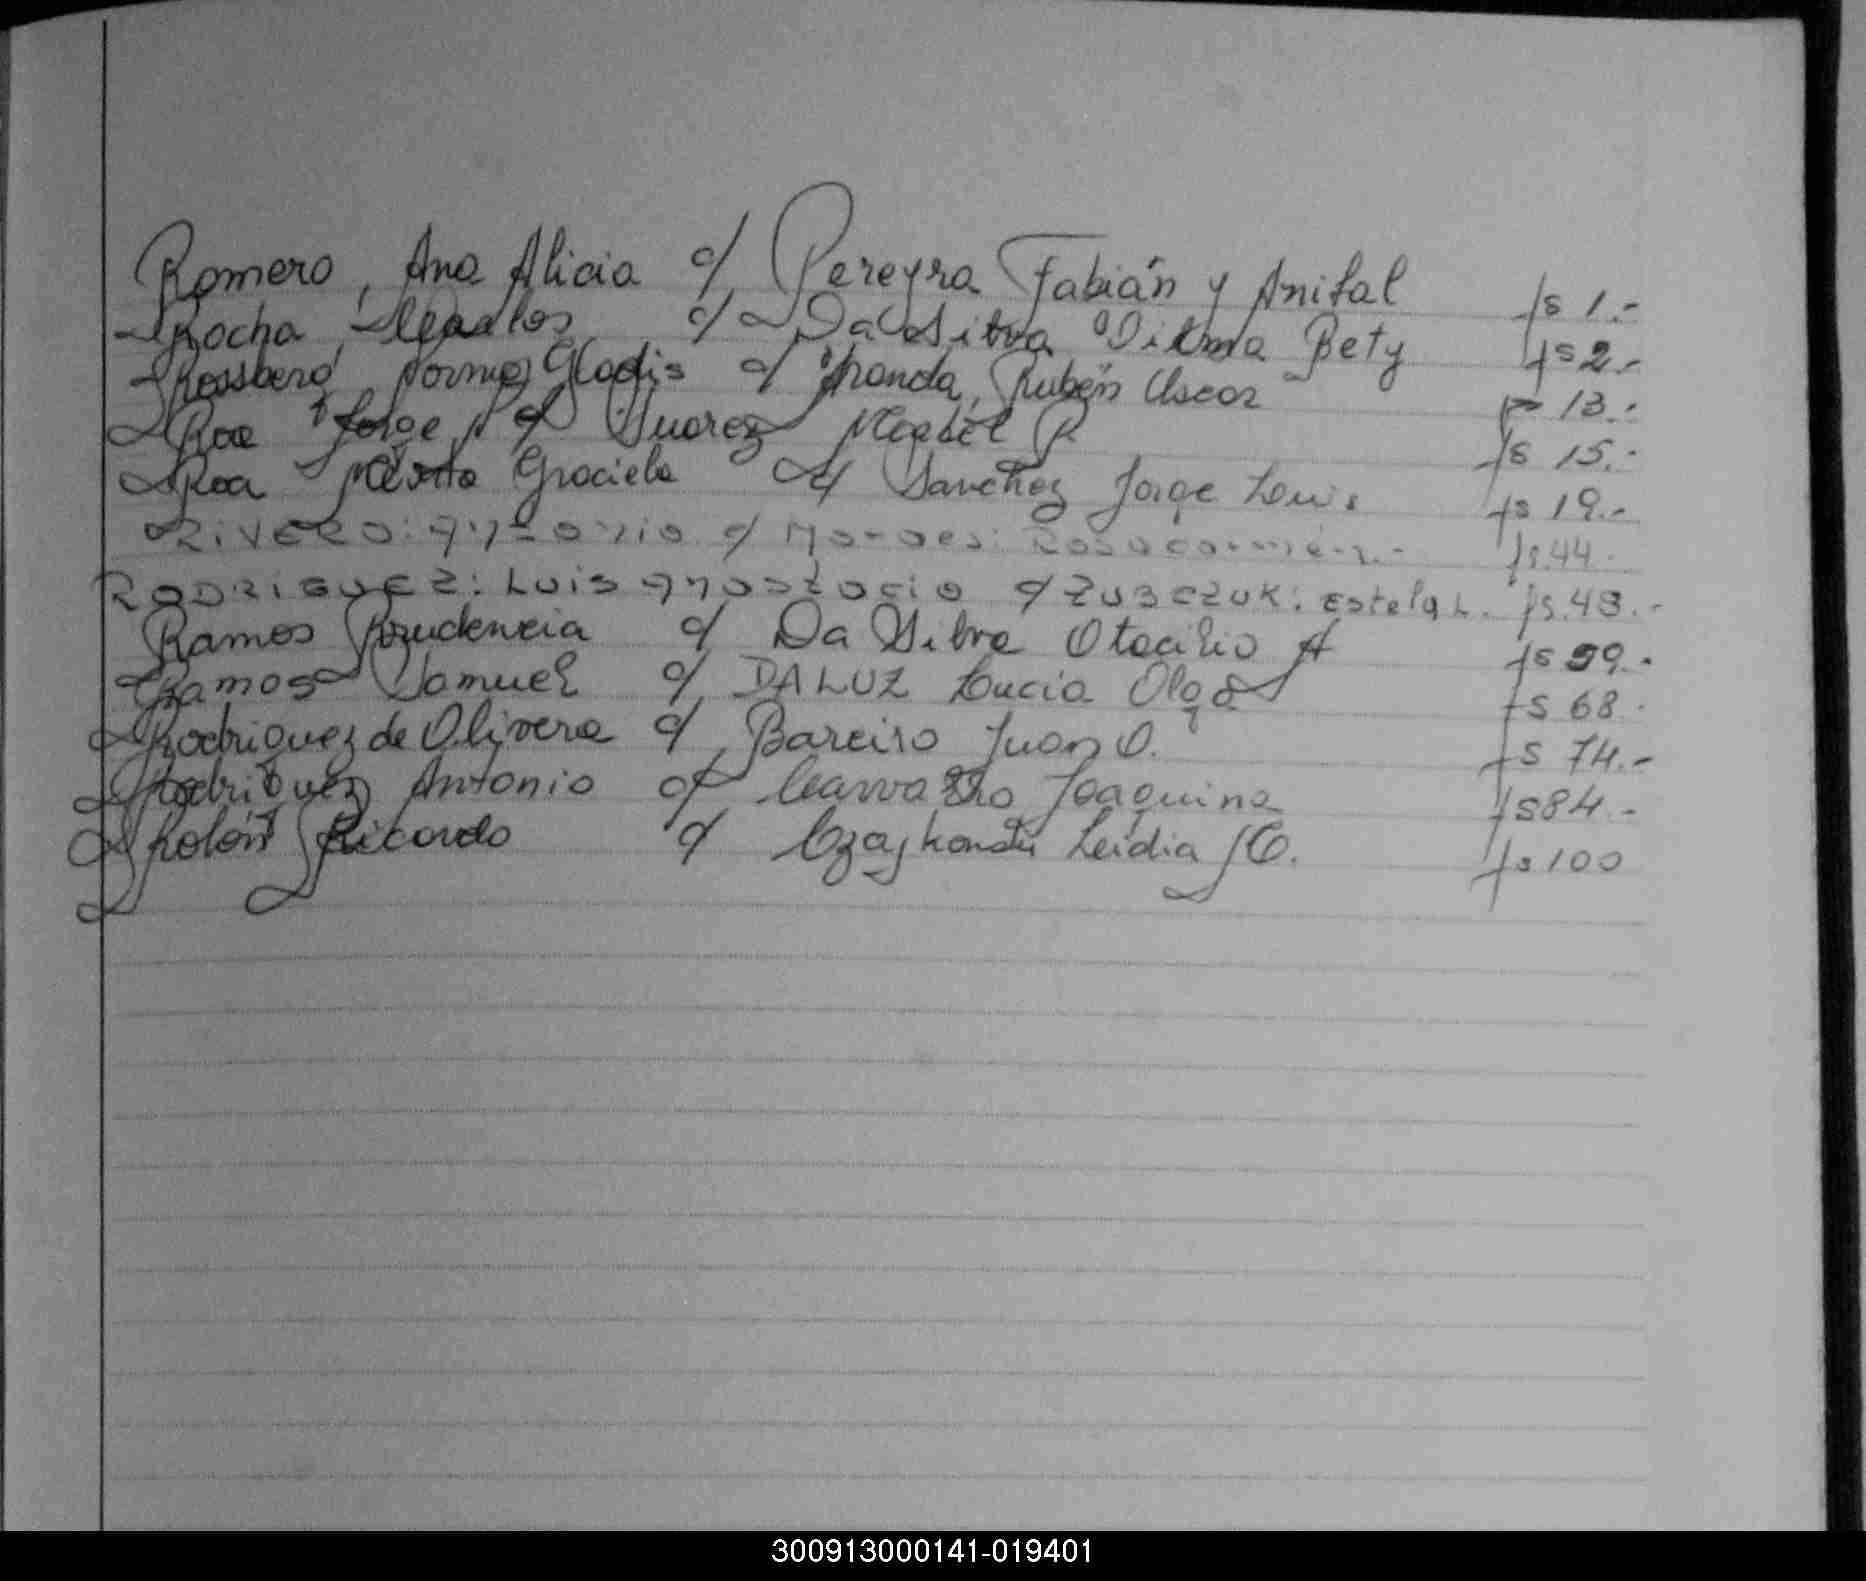 Romero, Ana Alicia c/ Pereyra Fabián y Anibal fs 1.-
Rocha, Carlos c/ Da Silva Vilma Bety fs 2.-
Rossberg, Norma Gladis c/ Aranda, Rubén Oscar 13.-
Roa Jorge c/ Suarez Mabel R fs 15.-
Roa Mirta Graciela c/ Sanchez Jorge Luis fs 19.-
RIVERO: Antonio c/ Moraes: Rosa carmen.- fs. 44.
RODRIGUEZ: LUIS Anastacio c/ ZUBCZUK: Estela L. fs. 48.-
Ramos Prudencia c/ Da Silva Otacilio A fs 59.-
Ramos Samuel c/ DALUZ Lucia Olga fs 68.
Rodriguez de Olivera c/ Bareiro Juan O. fs 74.-
Rodriguez Antonio c/ Carvalho Joaquina fs 84.-
Rolón Ricardo c/ Leidia fs 100
300913000141-019401